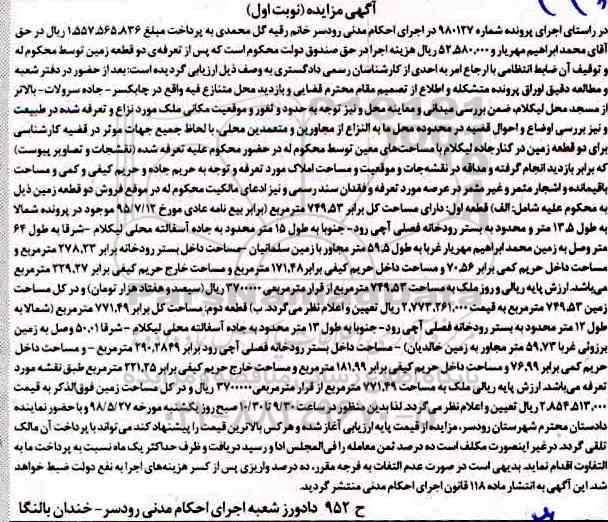 آگهی مزایده (نوبت اول)
در راستای اجرای پرونده شماره ۹۸۰۱۲۷ در اجرای احکام مدنی رودسر خانم رقیه گل محمدی به پرداخت مبلغ ۱،۵۵۷،۵۶۵،۸۳۶ ریال در حق
آقای محمد ابراهیم مهریار و ۵۲،۵۸۰،۰۰۰ ریال هزینه اجرا در حق صندوق دولت محکوم است که پس از تعرفه‌ی دو قطعه زمین توسط محکوم له
و توقیف آن ضابط انتظامی با ارجاع امر به احدی از کارشناسان رسمی دادگستری به وصف ذیل ارزیابی گردیده است: بعد از حضور در دفتر شعبه
و مطالعه دقیق اوراق پرونده متشکله و اطلاع از تصمیم مقام محترم قضایی و بازدید محل متنازع فیه واقع در چابکسر - جاده سرولات- بالاتر
از مسجد محل لیکلام، ضمن بررسی میدانی و معاینه محل و نیز توجه به حدود و ثغور و موقعیت مکانی ملک مورد نزاع و تعرفه شده در طبیعت
و نیز بررسی اوضاع و احوال قضیه در محدوده محل ما به النزاع از مجاورین و متعمدین محلی، با لحاظ جمیع جهات موثر در قضیه کارشناسی
برای دو قطعه زمین در کنار جاده لیکلام با مساحت‌های معین توسط محکوم له در حضور محکوم علیه تعرفه شده (نقشجات و تصاویر پیوست)
که برابر بازدید انجام گرفته و مداقه در نقشه‌جات و موقعیت و مساحت املاک مورد تعرفه و توجه به حریم جاده و حریم کیفی و کمی و مساحت
باقیمانده و اشجار مثمر و غیر مثمر در عرصه مورد تعرفه و فقدان سند رسمی و نیز ادعای مالکیت محکوم له در موقع فروش دو قطعه زمین ذیل
به محکوم علیه شامل: الف) قطعه اول: دارای مساحت کل برابر ۷۴۹،۵۳ مترمربع (برابر بیع نامه عادی مورخ ۹۵/۷/۱۳ موجود در پرونده شمالا
به طول ۱۳،۵ متر و محدود به بستر رودخانه فصلی آچی رود- جنوبا به طول ۱۵ متر محدود به جاده آسفالته محلی لیکلام -شرقا به طول ۶۴
متر وصل به زمین محمد ابراهیم مهریار غربا به طول ۵۹،۵ متر مجاور با زمین سلمانیان -مساحت داخل بستر رودخانه برابر ۲۷۸،۲۳ مترمربع و
مساحت داخل حریم کمی برابر ۷۰،۵۶ و مساحت داخل حریم کیفی برابر ۱۷۱،۴۸ مترمربع و مساحت خارج حریم کیفی برابر ۲۲۹،۲۷ مترمربع
می‌باشد. ارزش پایه ریالی و روز ملک به مساحت ۷۴۹،۵۳ مترمربع از قرار مترمربعی ۳۷۰۰۰۰۰ ریال (سیصد و هفتاد هزار تومان) و در کل مساحت
زمین ۷۴۹،۵۳ مترمربع به قیمت ۲،۷۷۳،۲۶۱،۰۰۰ ریال تعیین و اعلام نظر می‌گردد. ب) قطعه دوم: مساحت کل برابر ۷۷۱،۴۹ مترمربع (شمالا به
طول ۱۲ متر محدود به بستر رودخانه فصلی آچی رود- جنوبا به طول ۱۳ متر محدود به جاده آسفالته محلی لیکلام - شرقا ۵۰،۰۱ وصل به زمین
برزوئی غربا ۵۹،۷۳ متر مجاور به زمین خالدیان) - مساحت داخل بستر رودخانه فصلی آچی رود برابر ۲۹۰،۲۸۴۹ مترمربع - و مساحت داخل
حریم کمی برابر ۷۶،۹۹ و مساحت داخل حریم کیفی برابر ۱۸۱،۹۹ مترمربع و مساحت خارج حریم کیفی برابر ۲۲۱،۲۵ مترمربع طبق نقشه مورد
تعرفه می‌باشد. ارزش پایه ریالی ملک به مساحت ۷۷۱،۴۹ مترمربع از قرار مترمربعی ۳۷۰۰۰۰۰ ریال و در کل مساحت زمین فوق‌الذکر به قیمت
۲،۸۵۴،۵۱۳،۰۰۰ ریال تعیین و اعلام نظر می‌گردد. لذا بدین منظور در ساعت ۹/۳۰ تا ۱۰/۳۰ صبح روز یکشنبه مورخه ۹۸/۵/۲۷ و با حضور نماینده
دادستان محترم شهرستان رودسر، مزایده از قیمت پایه ارزیابی آغاز شده و هر کس بالاترین قیمت را پیشنهاد کند می‌تواند با پرداخت آن مالک
تلقی گردد. در غیر اینصورت مکلف است ده درصد ثمن معامله را فی‌المجلس ادا و رسید دریافت و ظرف حداکثر یک ماه نسبت به پرداخت ما به
التفاوت اقدام نماید. بدیهی است در صورت عدم التفات به فرجه مقرر، ده درصد واریزی پس از کسر هزینه‌های اجرا به نفع دولت ضبط خواهد
شد. این آگهی به انتشار ماده ۱۱۸ قانون اجرای احکام مدنی منتشر گردید.
ح ۹۵۲ دادورز شعبه اجرای احکام مدنی رودسر- خندان بالنگا